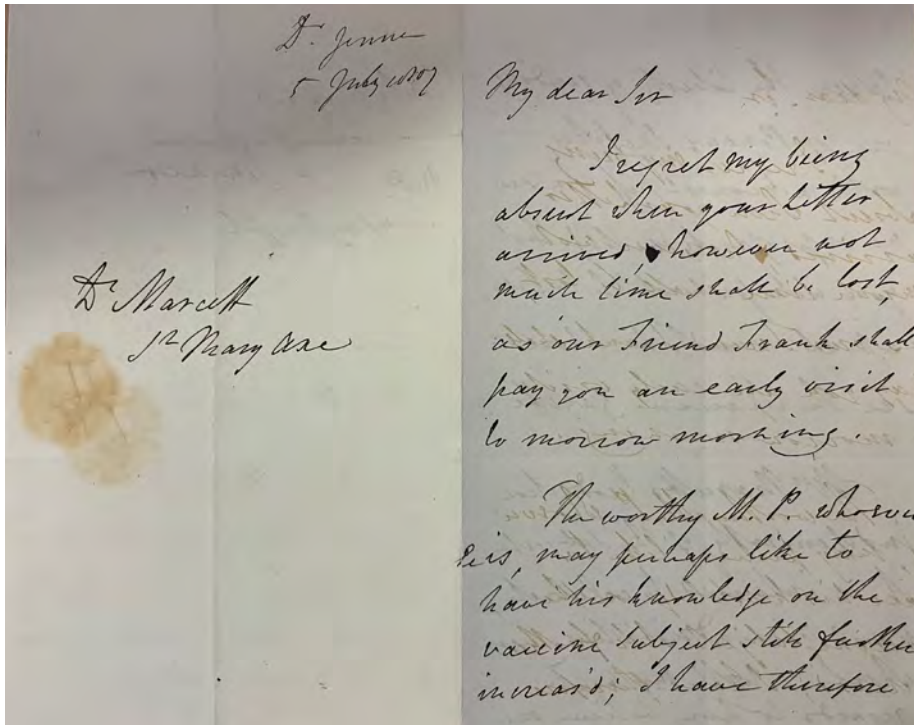 Dr. Jenner
5 July 1807
Dr Marcett
St Mary Axe
My dear Sir
I regret my being
absent when your letter
arrived, however not
much time shall be lost,
as our Friend Frank shall
pay you an early visit
to morrow morning.
The worthy M. P. whoever
he is, may perhaps like to
have his knowledge on the
vaccine subject still further
increas'd; I have therefore